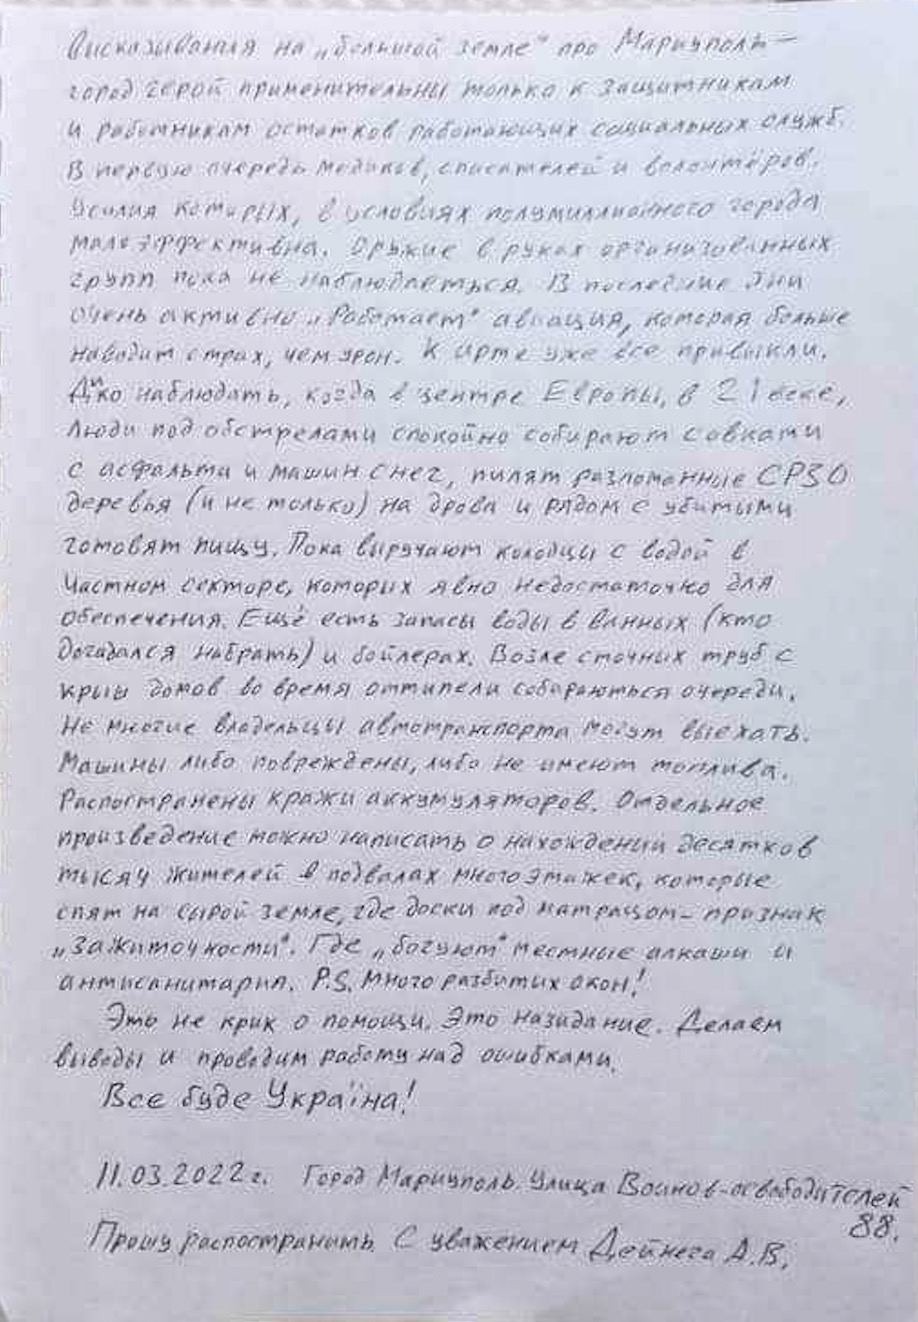 Висказивания на „большой земле" про Мариуполь —
город герой применительны только к защитникам
и работникам остатков работающих социальных служб.
В первую очередь медиков, спасателей и волонтёров.
Усилия которых, в условиях полумиллионного города
мало эффективна. Оружие в руках организованных
групп пока не наблюдаеться. В последние дни
очень активно „Работает" авиация, которая больше
наводит страх, чем урон. К арте уже все привыкли.
Дико наблюдать, когда в центре Европы, в 21 веке,
люди под обстрелами спокойно собирают совками
с асфальта и машин снег, пилят разломанные СРЗО
деревья (и не только) на дрова и рядом с убитыми
готовят пищу. Пока выручают колодцы с водой в
частном секторе, которых явно недостаточно для
обеспечения. Ещё есть запасы воды в ванных (кто
догадался набрать) и бойлерах. Возле сточных труб с
крыш домов во время оттипели собараються очереди.
Не многие владельцы автотранспорта могут выехать.
Машины либо повреждены, либо не имеют топлива.
Распостранены кражи аккумуляторов. Отдельное
произведение можно написать о нахождении десятков
тысяч жителей в подвалах многоэтажек, которые
спят на сырой земле, где доски под матрацом - признак
„зажиточности". Где „богуют" местные алкаши и
антисанитария. P.S. Много разбитих окон!
Это не крик о помощи. Это назидание. Делаем
выводы и проводим работу над ошибками.
Все буде Україна!
11.03.2022 г. Город Мариуполь. Улица Воинов-освободителей
88.
Прошу распостранить. С уважением Дейнега А.В.